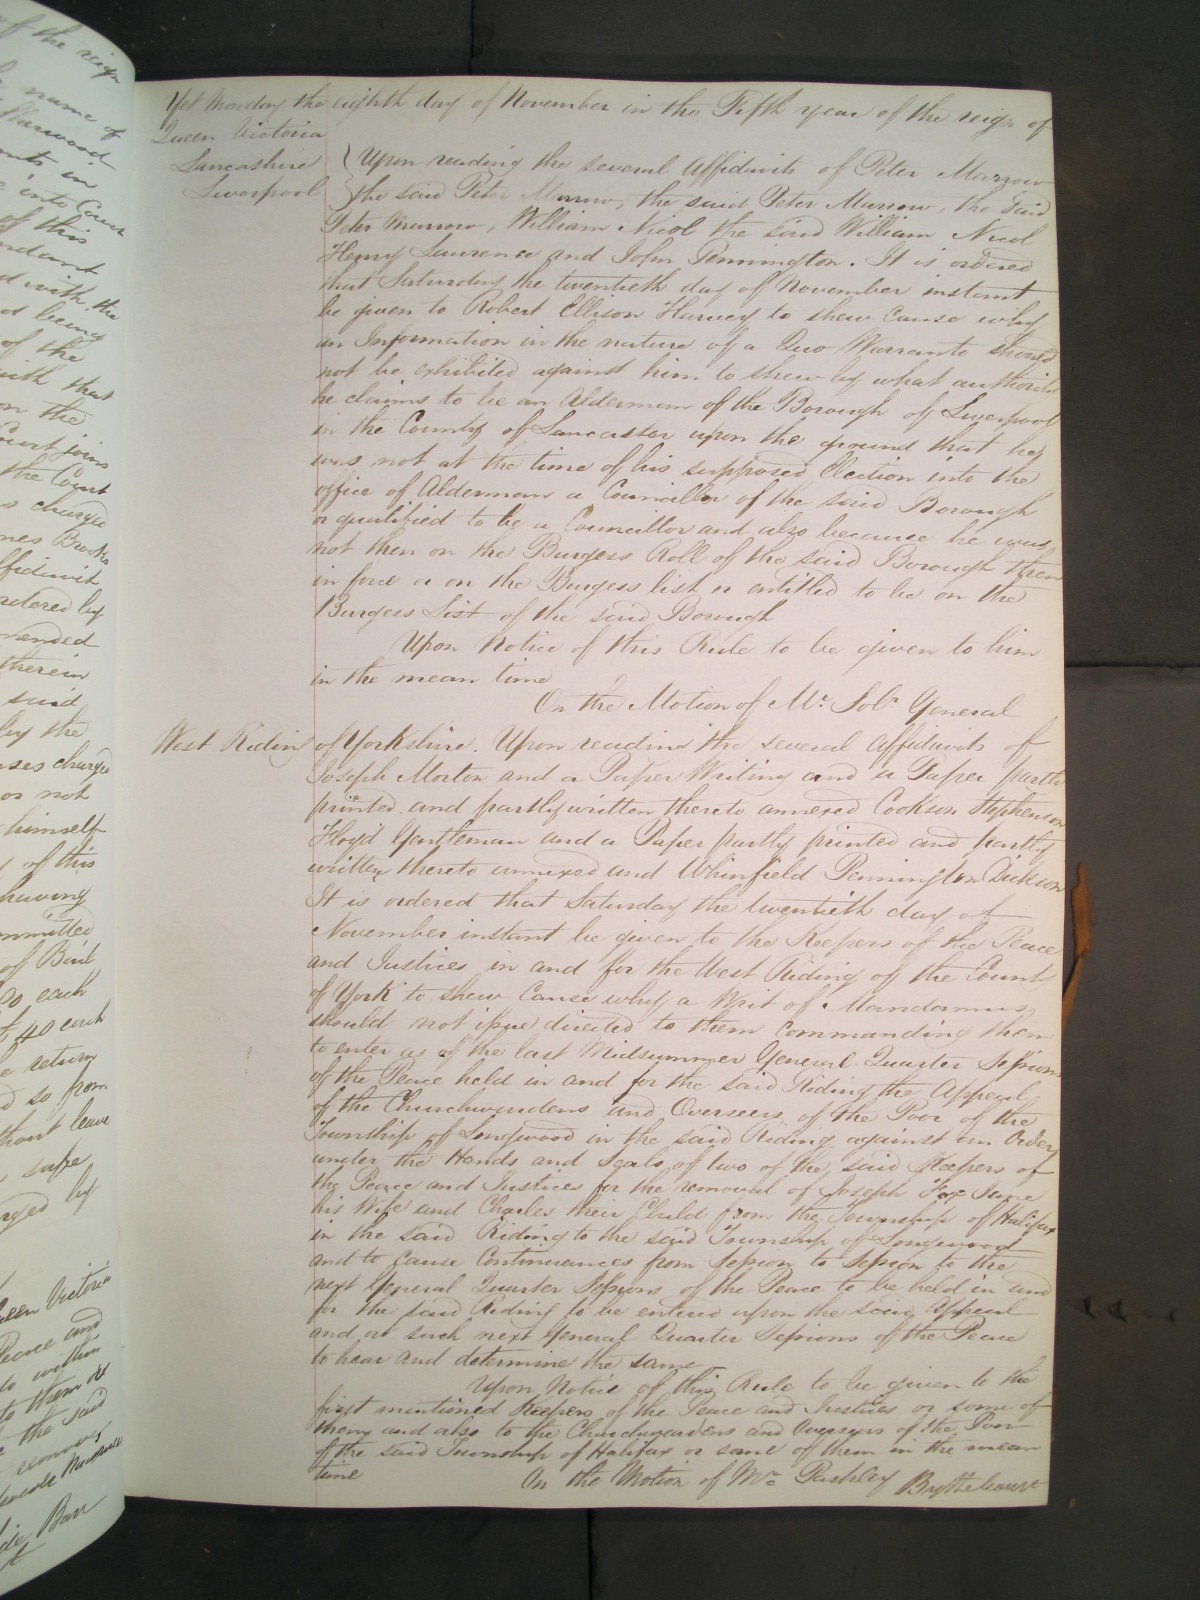 of the reign
name of
Sherwood
in
into Court
of this
with the
being
of the
with that
on the
Court joins
the Court
charged
Brooks
ordered by
therein
said
by the
charged
or not
himself
of this
having
committed
of Bail
each
£40 each
return
so from
without leave
by
Queen Victoria
Peace and
to within
to them
the said
remove
Barr
Yet Monday the eighth day of November in the Fifth year of the reign of
Queen Victoria
Lancashire
Liverpool
Upon reading the several Affidavits of Peter Marrow
the said Peter Marrow, the said Peter Marrow, the said
Peter Marrow, William Nicol the said William Nicol
Henry Lawrence and John Pennington. It is ordered
that Saturday the twentieth day of November instant
be given to Robert Ellison Harvey to shew Cause why
an Information in the nature of a Quo Warranto should
not be exhibited against him to shew by what authority
he claims to be an Alderman of the Borough of Liverpool
in the County of Lancaster upon the ground that he
was not at the time of his supposed Election into the
office of Alderman a Councillor of the said Borough
or qualified to be a Councillor and also because he was
not then on the Burgess Roll of the said Borough then
in force or on the Burgess list or entitled to be on the
Burgess List of the said Borough
Upon Notice of this Rule to be given to him
in the mean time
On the Motion of Mr. Solr General
West Riding of Yorkshire. Upon reading the several Affidavits of
Joseph Morton and a Paper Writing and a Paper partly
printed and partly written thereto annexed Cookson Stephenson
Floyd Gentleman and a Paper partly printed and partly
written thereto annexed and Whinfield Pennington Dickson
It is ordered that Saturday the twentieth day of
November instant be given to the Keepers of the Peace
and Justices in and for the West Riding of the County
of York to shew Cause why a Writ of Mandamus
should not issue directed to them commanding them
to enter as of the last Midsummer General Quarter Sessions
of the Peace held in and for the said Riding the Appeal
of the Churchwardens and Overseers of the Poor of the
Township of Longwood in the said Riding against an Order
under the Hands and Seals of two of the said Keepers of
the Peace and Justices for the removal of Joseph Fox Jane
his Wife and Charles their Child from the Township of Halifax
in the said Riding to the said Township of Longwood
and to cause Continuances from Session to Session to the
next General Quarter Sessions of the Peace to be held in and
for the said Riding to be entered upon the said Appeal
and at such next General Quarter Sessions of the Peace
to hear and determine the same
Upon Notice of this Rule to be given to the
first mentioned Keepers of the Peace and Justices or some of
them and also to the Churchwardens and Overseers of the Poor
of the said Township of Halifax or some of them in the mean
time
On the Motion of Mr. Pashley By the Court